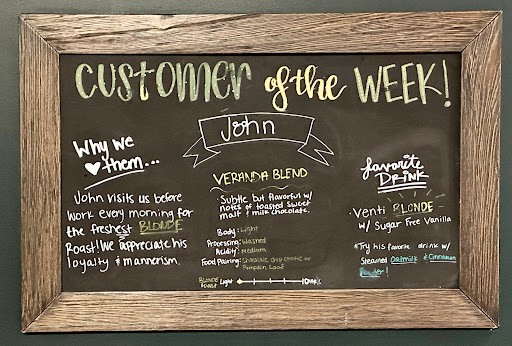 CUSTOMER of the WEEK!
John
Why we
♥ them...
John visits us before
work every morning for
the freshest BLONDE
Roast! We appreciate his
loyalty & mannerism.
VERANDA BLEND
Subtle but flavorful w/
notes of toasted sweet
malt & milk chocolate.
Body: Light
Processing: Washed
Acidity: Medium
Food Pairing: Chocolate chip cookie or
Pumpkin Loaf
BLONDE
ROAST Light DARK
favorite
DRINK
Venti BLONDE
w/ Sugar Free Vanilla
*Try his favorite drink w/
Steamed Oatmilk & Cinnamon
Powder!